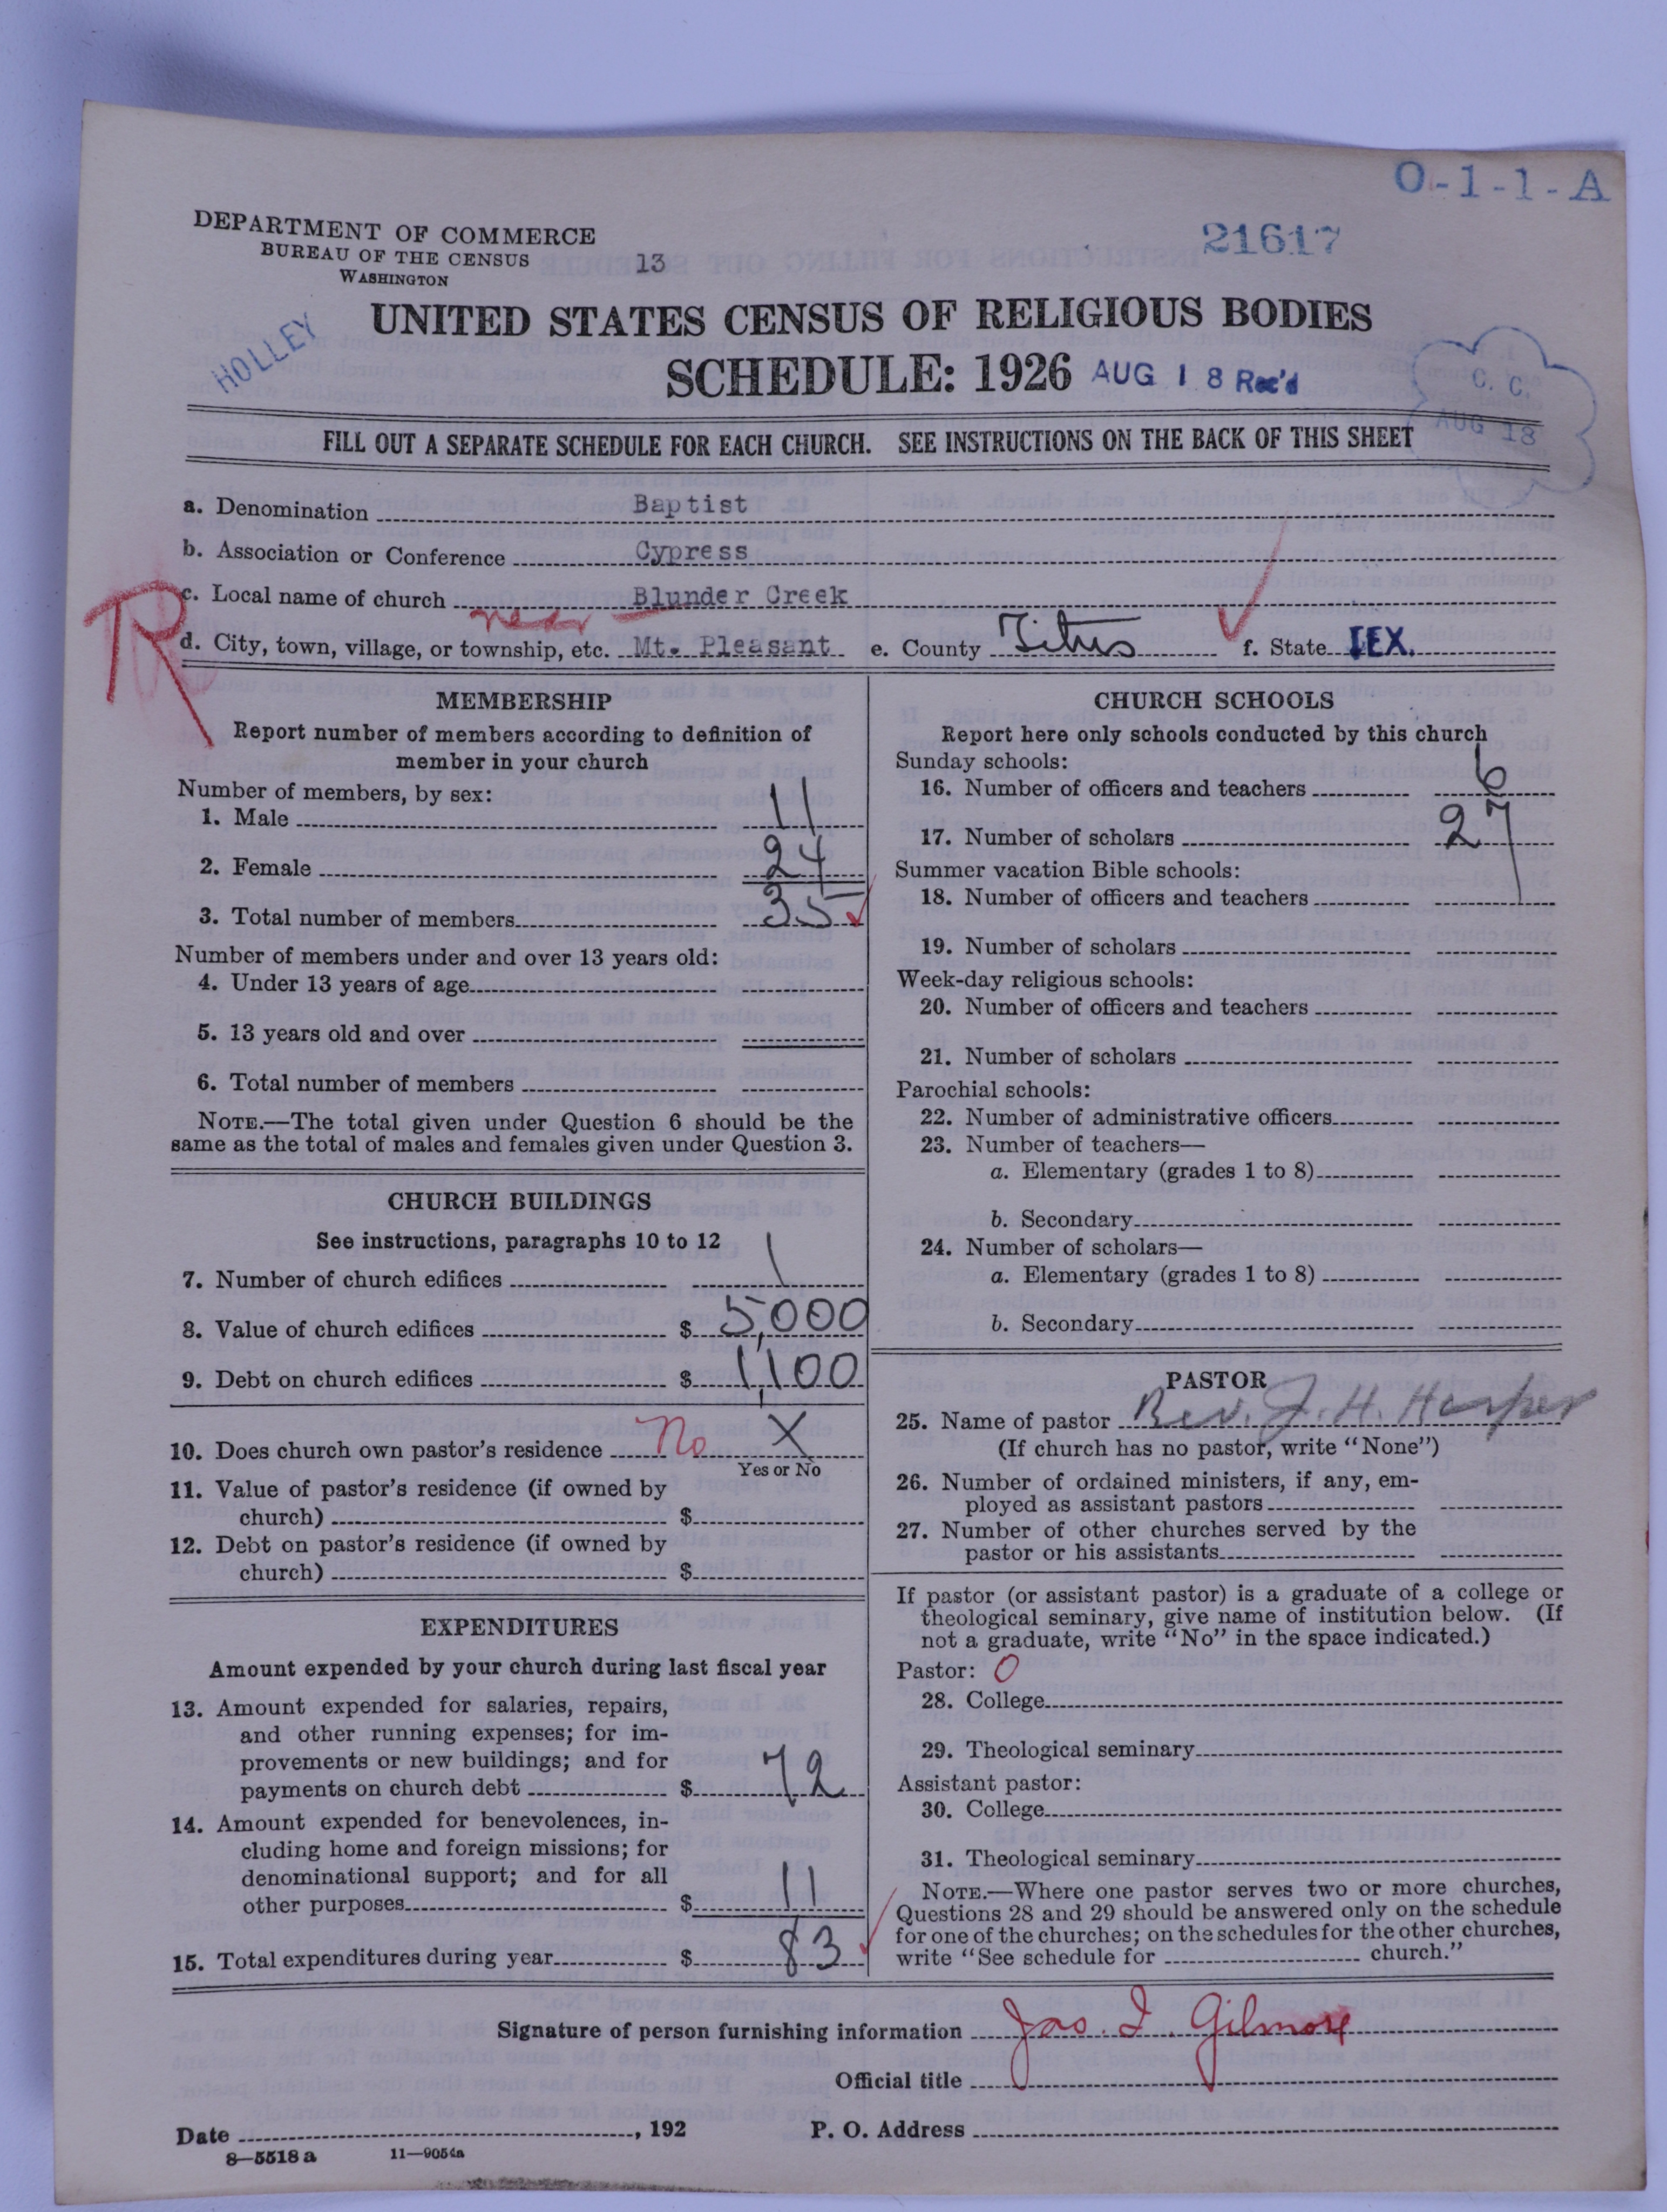 O-1-1-A
21617
DEPARTMENT OF COMMERCE
BUREAU OF THE CENSUS
WASHINGTON
13
HOLLEY
UNITED STATES CENSUS OF RELIGIOUS BODIES
SCHEDULE: 1926 AUG 18 Rec'd
C. C.
AUG 18
FILL OUT A SEPARATE SCHEDULE FOR EACH CHURCH. SEE INSTRUCTIONS ON THE BACK OF THIS SHEET
a. Denomination Baptist
b. Association or Conference Cypress
R
c. Local name of church Blunder Creek
near
d. City, town, village, or township, etc. Mt. Pleasant e. County Titus f. State TEX.
MEMBERSHIP
Report number of members according to definition of
member in your church
Number of members, by sex:
1. Male 11
2. Female 24
3. Total number of members 35
Number of members under and over 13 years old:
4. Under 13 years of age
5. 13 years old and over
6. Total number of members
NOTE.—The total given under Question 6 should be the
same as the total of males and females given under Question 3.
CHURCH BUILDINGS
See instructions, paragraphs 10 to 12
7. Number of church edifices 1
8. Value of church edifices $ 5,000
9. Debt on church edifices $ 1,100
10. Does church own pastor's residence No X
Yes or No
11. Value of pastor's residence (if owned by
church) $
12. Debt on pastor's residence (if owned by
church) $
EXPENDITURES
Amount expended by your church during last fiscal year
13. Amount expended for salaries, repairs,
and other running expenses; for im-
provements or new buildings; and for
payments on church debt $ 72
14. Amount expended for benevolences, in-
cluding home and foreign missions; for
denominational support; and for all
other purposes $ 11
15. Total expenditures during year $ 83
CHURCH SCHOOLS
Report here only schools conducted by this church
Sunday schools:
16. Number of officers and teachers 6
17. Number of scholars 27
Summer vacation Bible schools:
18. Number of officers and teachers
19. Number of scholars
Week-day religious schools:
20. Number of officers and teachers
21. Number of scholars
Parochial schools:
22. Number of administrative officers
23. Number of teachers—
a. Elementary (grades 1 to 8)
b. Secondary
24. Number of scholars—
a. Elementary (grades 1 to 8)
b. Secondary
PASTOR
25. Name of pastor Rev. J. H. Harper
(If church has no pastor, write "None")
26. Number of ordained ministers, if any, em-
ployed as assistant pastors
27. Number of other churches served by the
pastor or his assistants
If pastor (or assistant pastor) is a graduate of a college or
theological seminary, give name of institution below. (If
not a graduate, write "No" in the space indicated.)
Pastor: O
28. College
29. Theological seminary
Assistant pastor:
30. College
31. Theological seminary
NOTE.—Where one pastor serves two or more churches,
Questions 28 and 29 should be answered only on the schedule
for one of the churches; on the schedules for the other churches,
write "See schedule for church."
Signature of person furnishing information Jas. I. Gilmore
Official title
Date , 192 P. O. Address
8—5518 a 11—9054a